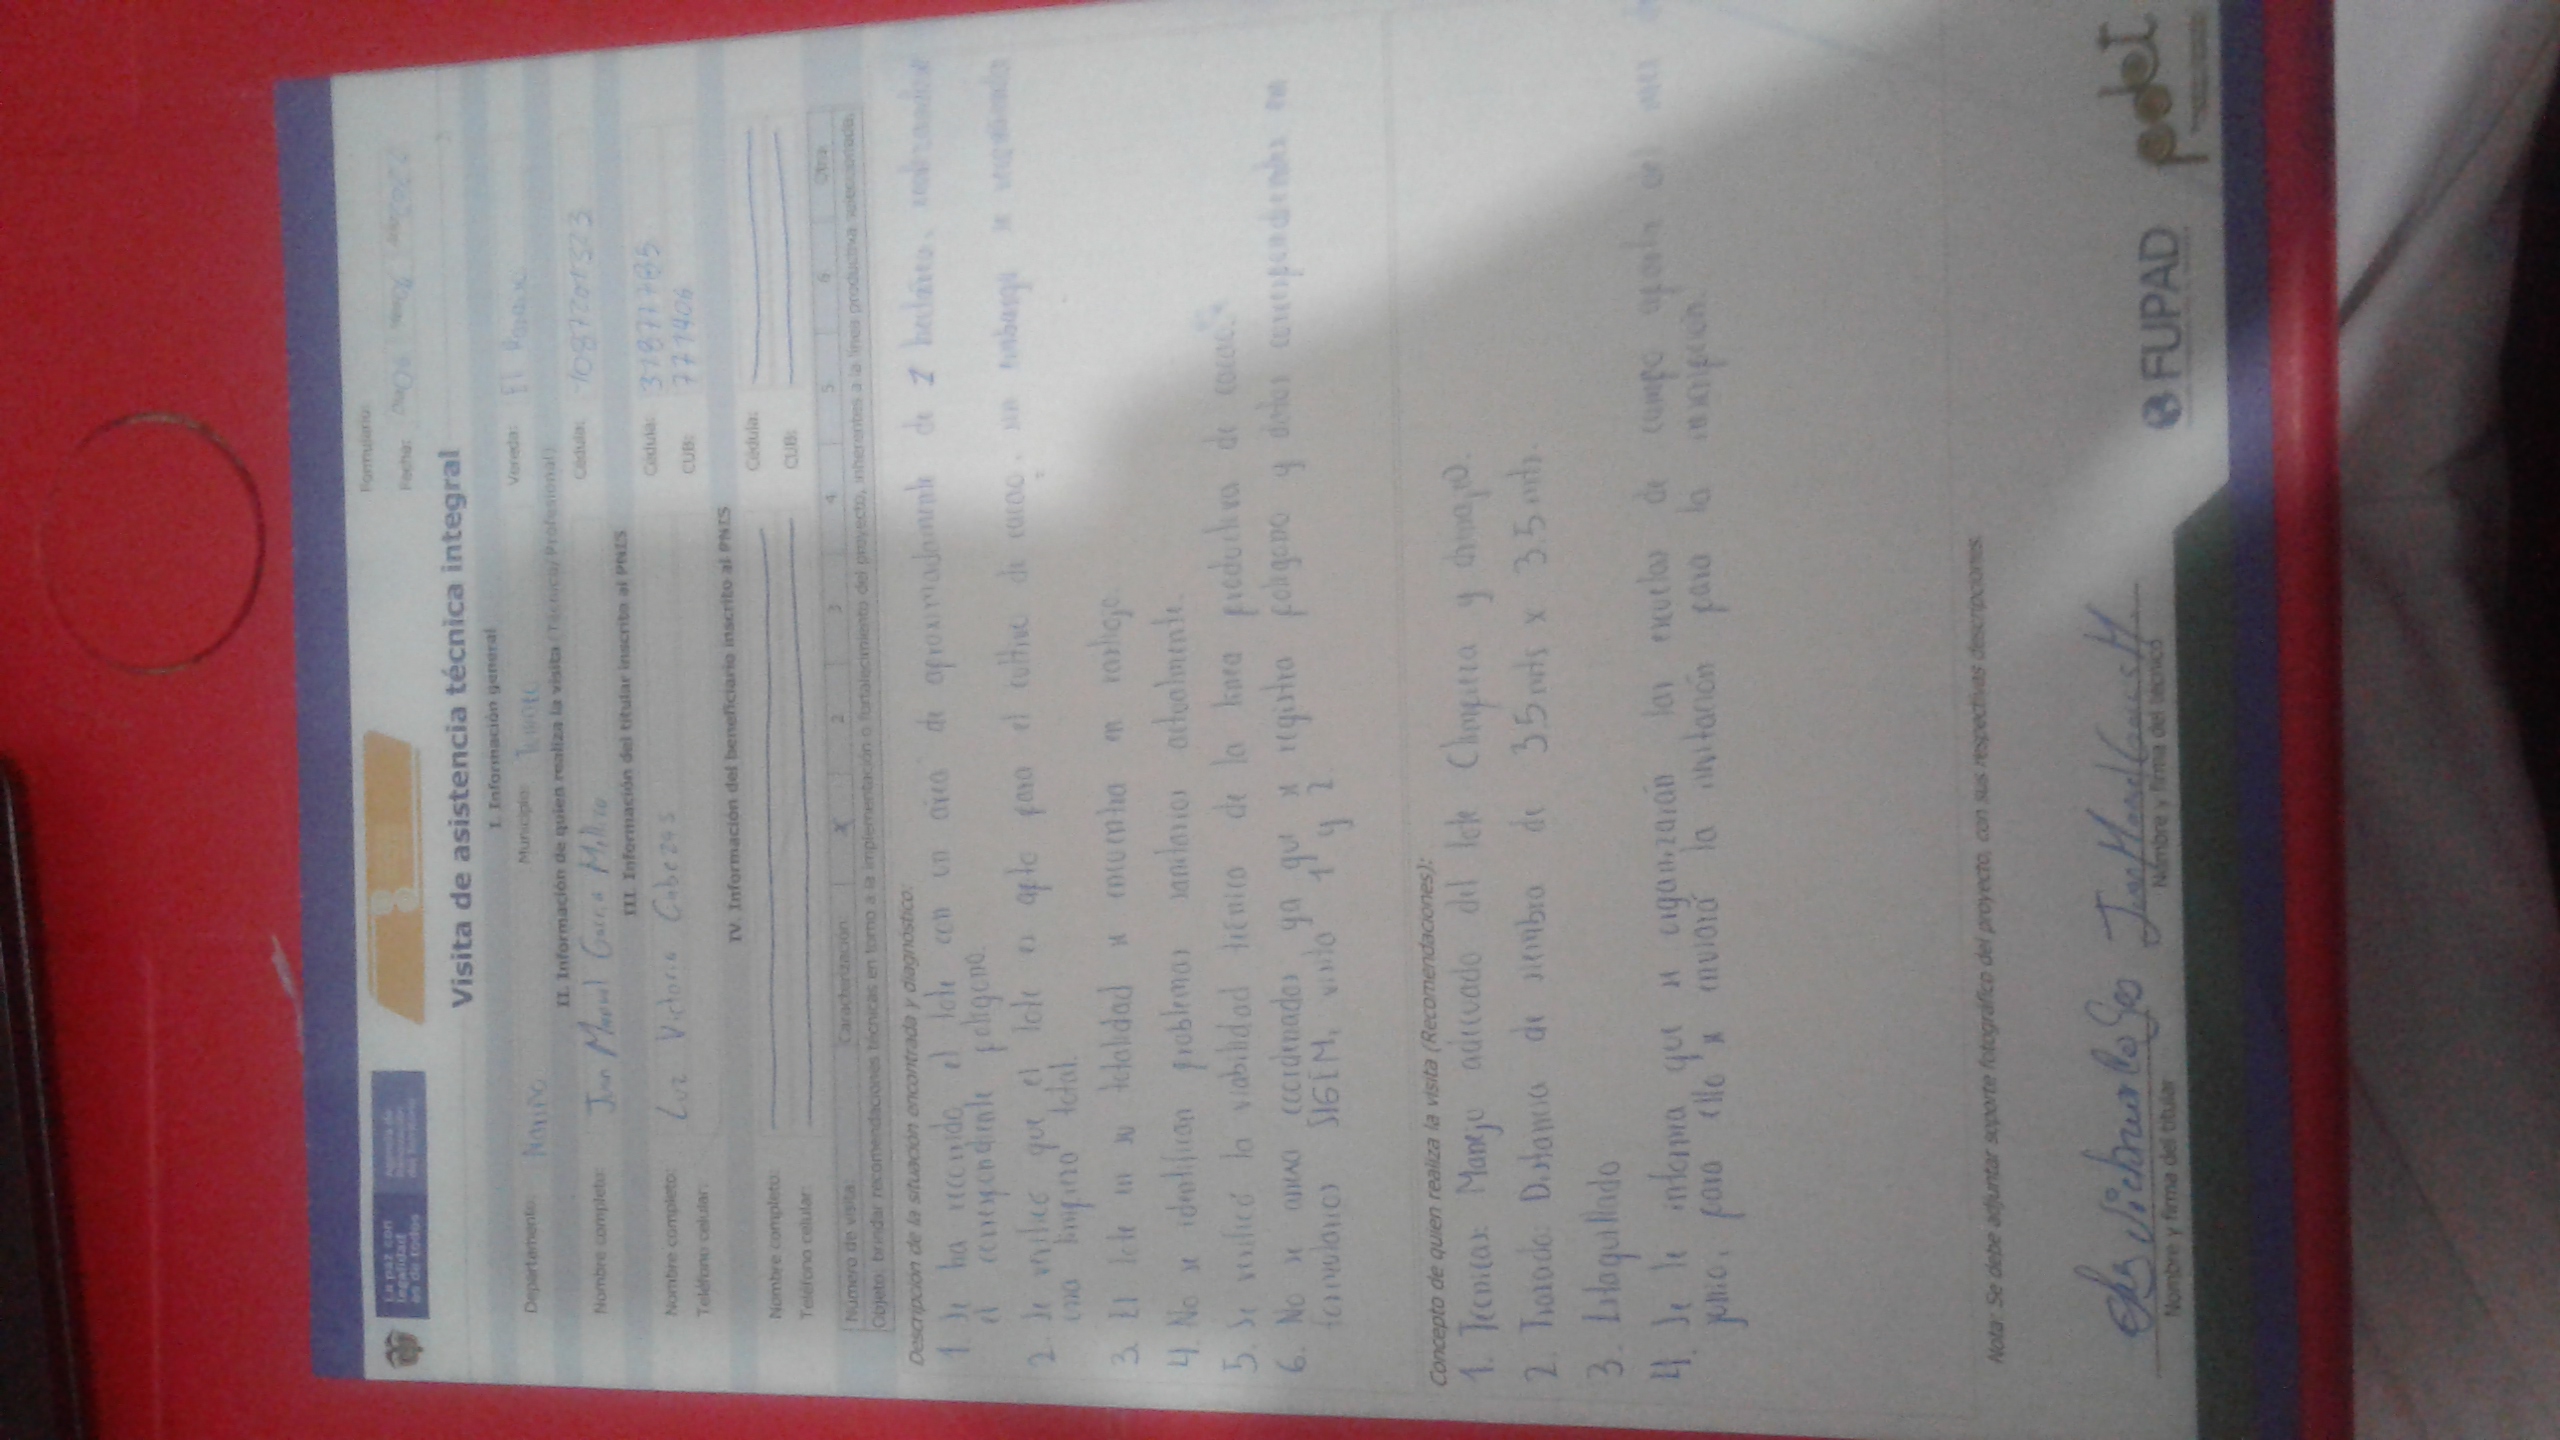 La paz con
legalidad
es de todos
Agencia de
Renovación
del Territorio
Formulario:
Fecha: 2022
Visita de asistencia técnica integral
I. Información general
Departamento: Nariño Municipio: Vereda: El
II. Información de quien realiza la visita (Técnico/Profesional)
Nombre completo: Juan Manuel García Cédula: 1087201523
III Información del titular inscrito al PNIS
Nombre completo: Luz Victoria Cabezas Cédula:
Teléfono celular: CUB: 7771406
IV. Información del beneficiario inscrito al PNIS
Nombre completo: Cédula:
Teléfono celular: CUB:
Número de visita: Caracterización 1 X 2 3 4 5 6 Otra
Objeto: brindar recomendaciones técnicas en torno a la implementación o fortalecimiento del proyecto, inherentes a la línea productiva seleccionada.
Descripción de la situación encontrada y diagnóstico:
1. Se ha recorrido el lote con un area de aproximadamente de 2 hectáreas,
el correspondiente poligono.
2. Se verifico que el lote es apto para el cultivo de cacao, sin embargo se recomienda
una limpieza total.
3. El lote en su totalidad se encuentra en rastrojo.
4. No se identifican problemas sanitarios actualmente.
5. Se verificó la viabilidad técnica de la linea productiva de cacao.
6. No se anexa coordenadas ya que se registra poligono y datos correspondientes en
formularios SIGEM, visita 1 y 2.
Concepto de quien realiza la visita (Recomendaciones):
1. Tecnicas: Manejo adecuado del lote (limpieza y drenajes).
2. Trazado: Distancia de siembra de 3.5 mts x 3.5 mts.
3. Estaquillado
4. Se le informa que se organizarán las escuelas de campo aparte en mes de
junio, para ello se enviará la invitación para la inscripcion.
Nota: Se debe adjuntar soporte fotográfico del proyecto, con sus respectivas descripciones.
Nombre y firma del titular
Nombre y firma del técnico
FUPAD
pdet